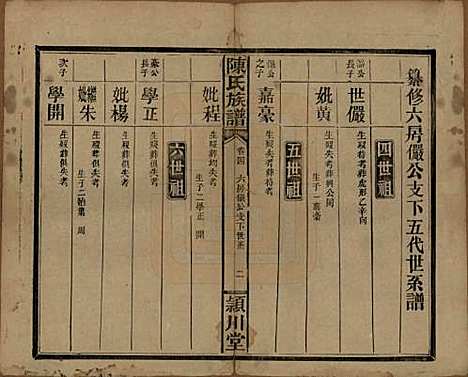 纂修六房儼公支下五代世系譜
四世祖
溫公
長子
世儼
生歿失考葬虎形乙辛向
妣黃
生歿失考葬與公同
生子一嘉豪
五世祖
儼公
之子
嘉豪
生歿失考葬
陳氏族譜
卷四
六房儼公支下世系
二
潁川堂
妣程
生歿葬均失考
生子二學正 開
六世祖
豪公
長子
學正
生歿葬俱失考
妣楊
生歿葬俱失考
繼妣朱
生歿葬俱失考
生子二 周
次子
學開
生歿葬俱失考